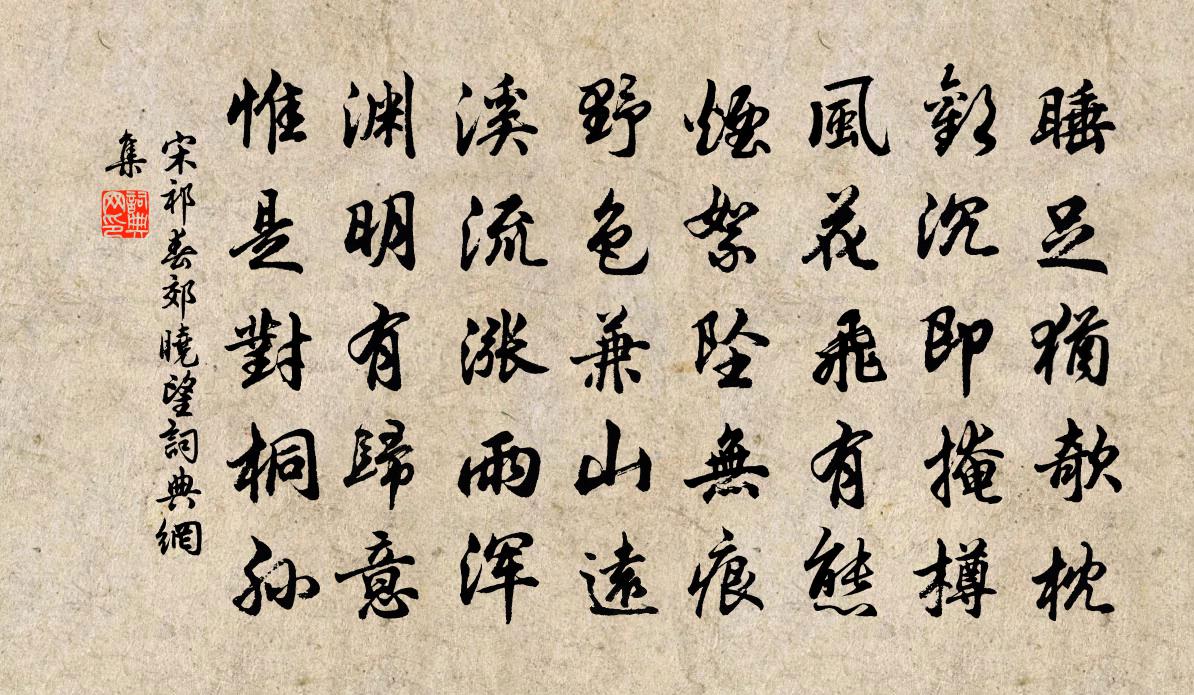 睡足猶欹枕
歡沉即掩樽
風花飛有態
煙絮墜無痕
野色兼山遠
溪流漲雨浑
渊明有歸意
惟是對桐孫
宋祁春郊曉望詞典網
集
詞典网印